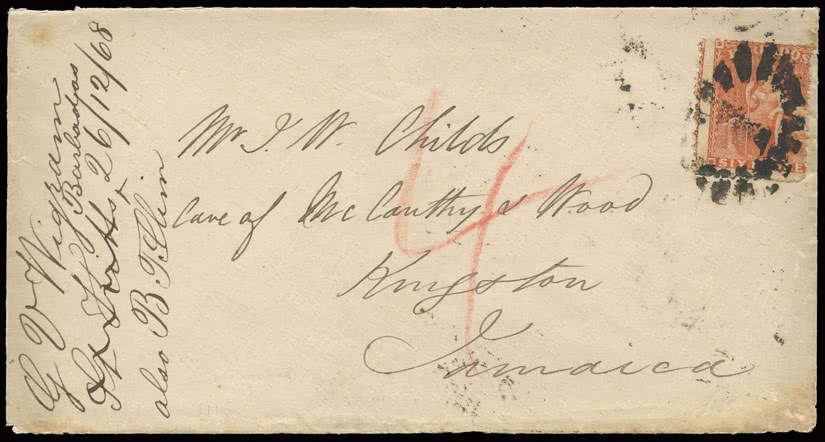 Mr J. W. Childs
Care of McCarthy & Wood
Kingston
Jamaica
4
G V Wigram
Barbadoes
St Kitts 26/12/68
also B T Slim
SIX